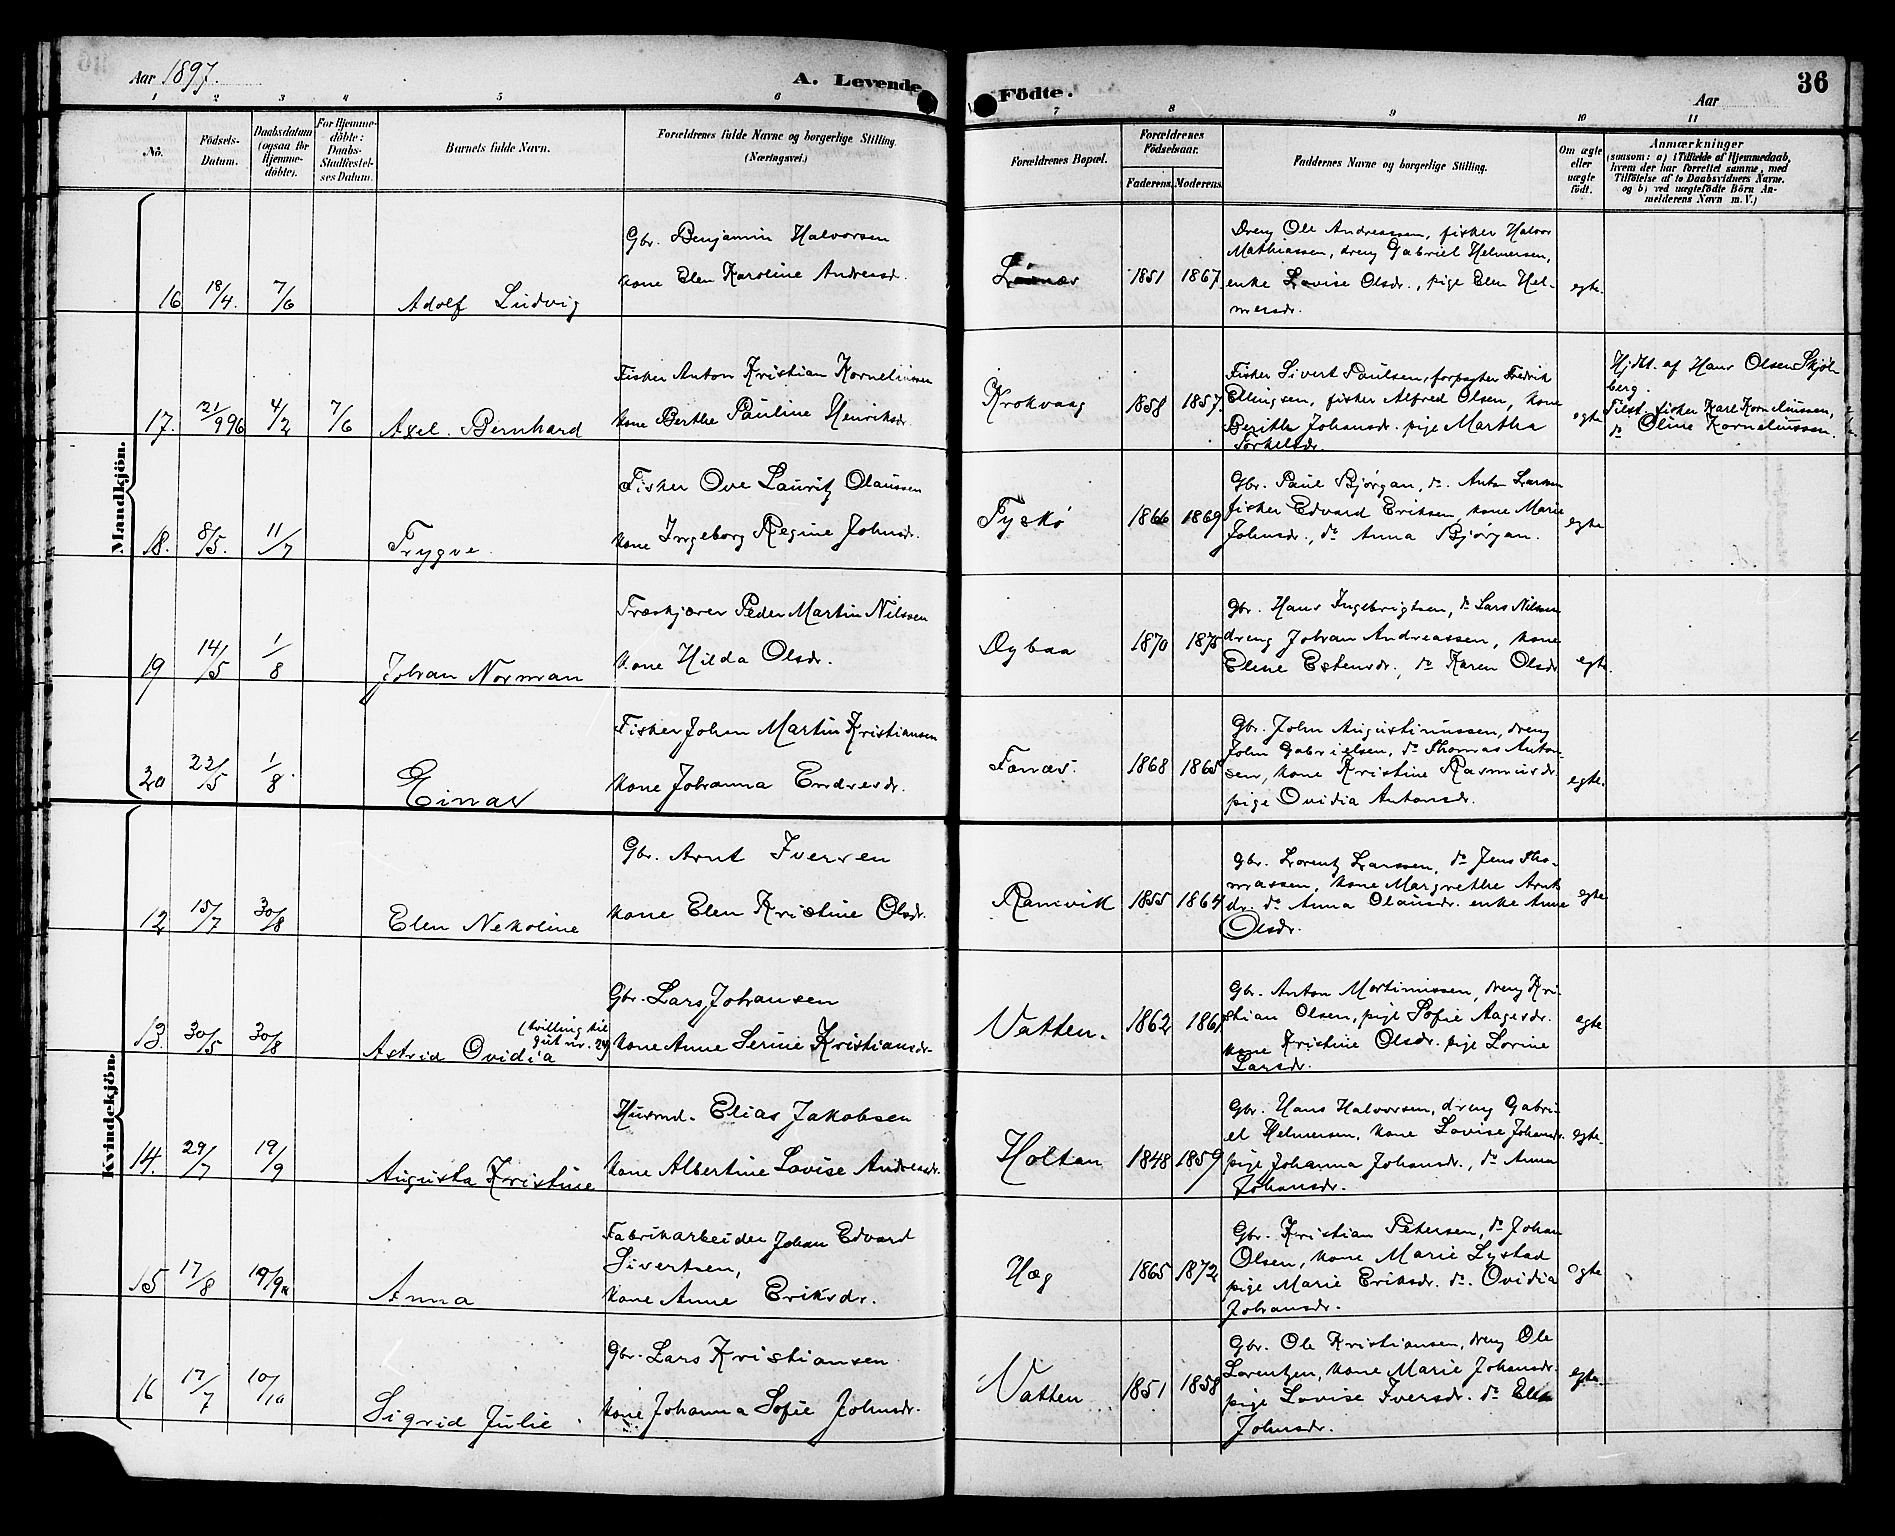 Aar 1897.
A. Levende
Födte.
Aar
36
1 2 3 4 5 6 7 8 9 10 11
Nö.
Födsels-
Datum.
Daabsdatum
(ogsaa for
Hjemme-
döbte).
For Hjemme-
döbte:
Daabs-
Stadfæstel-
ses Datum.
Barnets fulde Navn.
Forældrenes fulde Navne og borgerlige Stilling.
(Næringsvei.)
Forældrenes Bopæl.
Forældrenes
Födselsaar.
Faderens. Moderens.
Faddernes Navne og borgerlige Stilling.
Om ægte
eller
uægte
födt.
Anmærkninger
(saasom: a) i Tilfælde af Hjemmedaab,
hvem der har forrettet samme, med
Tilföielse af to Daabsvidners Navne,
og b) ved uægtefödte Börn An-
melderens Navn m. V.)
Mandkjön.
16 18/4. 7/6
Adolf Ludvig
Gbr. Benjamin Halvorsen
kone Elen Karoline Andreasd.
1851 1867
Dreng Ole Andreassen, fisker Halvor
Mathiassen, dreng Gabriel Helmersen,
enke Lovise Olsdr., pige Elen Hel-
mersdr.
egte.
17. 21/9 96 4/2 7/6
Axel Bernhard
Fisker Anton Kristian Korneliussen
kone Berthe Pauline Henriksdr.
Krokvaag
1858 1857.
Fisker Sivert Paulsen, forpagter Fredrik
Ellingsen, fisker Alfred Olsen, kone
Berithe Johansdr. pige Martha
Torkelsdr.
egte
Hjdt. af Hans Olsen Skjøl-
berg.
Tilst. fisker Karl Korneliussen,
do Oline Korneliussen.
18. 8/5. 11/7
Trygve.
Fisker Ove Lauritz Olaussen
kone Ingeborg Regine Johnsdr.
Tyskø
1866 1869
Gbr. Paul Bjørgan, do. Anton Larsen
fisker Edvard Eriksen kone Marie
Johnsdr., do Anna Bjørgan.
egte
19 14/5 1/8
Johan Norman
Træskjærer Peder Martin Nilssen
kone Hilda Olsdr.
Dybaa
1870 1875
Gbr. Hans Ingebrigtsen, do Lars Nilssen
dreng Johan Andreassen, kone
Eline Estensdr., do Karen Olsdr
egte.
20 22/5 1/8.
Einar
Fisker John Martin Kristiansen
kone Johanna Endresdr.
Fænæs.
1868 1865
Gbr. John Augustinussen, dreng
John Gabrielsen, do Thomas Anton-
sen, kone Kristine Rasmusdr
pige Ovidia Antonsdr.
egte.
Kvindekjön.
12 15/7 30/8
Elen Nekoline
Gbr. Arnt Iversen
kone Elen Kristine Olsdr.
Ramvik
1855 1864
Gbr. Lorentz Larssen, do Jens Tho-
massen, kone Margrethe Arnt-
dr. do Anna Olausdr. enke Anne
Olsdr.
egte
13. 30/5 30/8
Astrid Ovidia
(tvilling til
gut nr. 24)
Gbr. Lars Johansen
kone Anne Serine Kristiansdr.
Vatten.
1862 1861
Gbr. Anton Mortinussen, dreng Kri-
stian Olsen, pige Sofie Aagesdr.
kone Kristine Olsdr. pige Lovine
Larsdr.
egte
14. 29/7 19/9
Augusta Kristine
Husmd. Elias Jakobsen
kone Albertine Lovise Andreasdr.
Holtan
1848 1859
Gbr. Hans Halvorsen, dreng Gabri-
el Helmersen, kone Lovise Johansdr.
pige Johanna Johansdr., do Anna
Johansdr.
egte.
15 17/8 19/9
Anna
Fabrikarbeider Johan Edvard
Sivertsen,
kone Anne Eriksdr.
Hæg
1865 1872
Gbr. Kristian Petersen, do Johan
Olsen, kone Marie Lystad
pige Marie Eriksdr. do. Ovidia
Johansdr.
egte
16 17/7 10/10
Sigrid Julie.
Gbr. Lars Kristiansen
kone Johanna Sofie Johnsdr.
Vatten
1851 1858
Gbr. Ole Kristiansen, dreng Ole
Lorentzen, kone Marie Johansdr.
pige Lovise Iversdr. do Elen
Johnsdr.
egte.